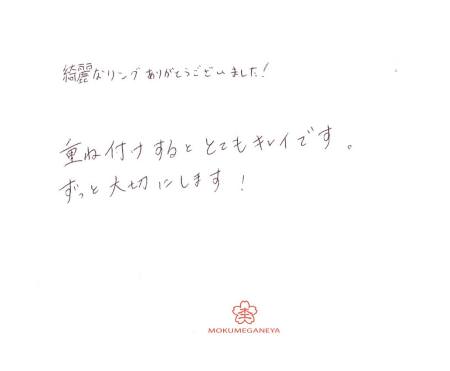 綺麗なリングありがとうございました!
重ね付けするととてもキレイです。
ずっと大切にします!
MOKUMEGANEYA